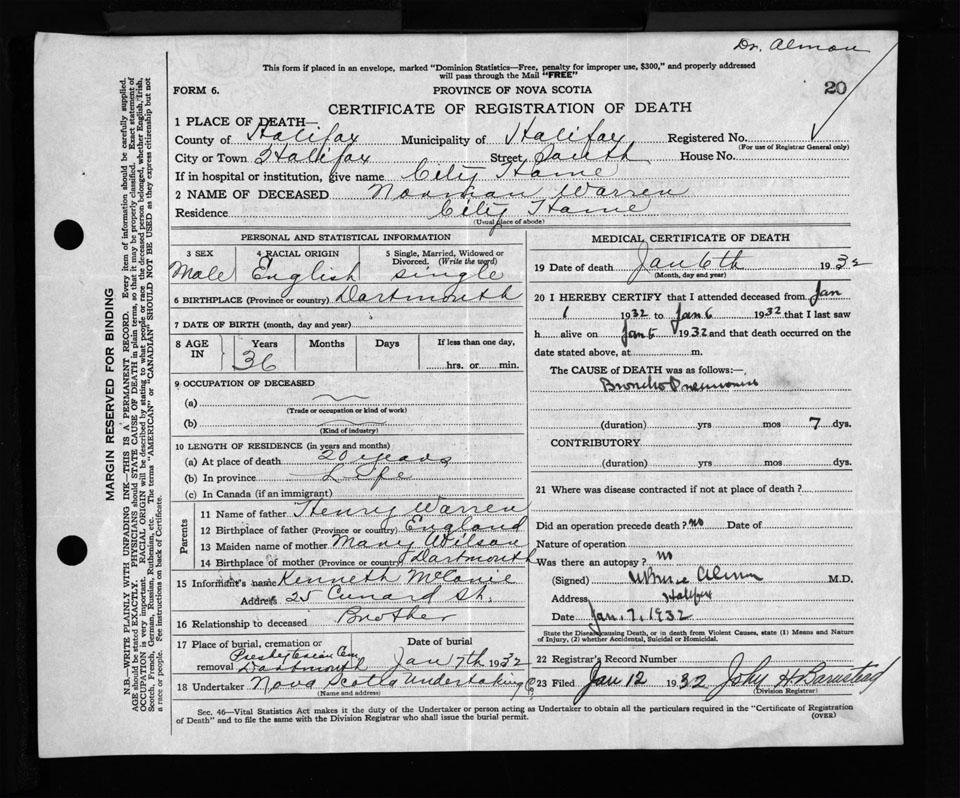 Dr. Almon
This form if placed in an envelope, marked "Dominion Statistics—Free, penalty for improper use, $300," and properly addressed
will pass through the Mail "FREE"
FORM 6.
PROVINCE OF NOVA SCOTIA
20
CERTIFICATE OF REGISTRATION OF DEATH
1 PLACE OF DEATH—
County of Halifax Municipality of Halifax Registered No.
(For use of Registrar General only)
City or Town Halifax Street South House No.
If in hospital or institution, give name City Home
2 NAME OF DECEASED Norman Warren
Residence City Home
(Usual place of abode)
PERSONAL AND STATISTICAL INFORMATION
3 SEX 4 RACIAL ORIGIN 5 Single, Married, Widowed or
Divorced. (Write the word)
Male English single
6 BIRTHPLACE (Province or country) Dartmouth
7 DATE OF BIRTH (month, day and year)
8 AGE IN Years Months Days If less than one day,
36 hrs. or min.
9 OCCUPATION OF DECEASED
(a)
(Trade or occupation or kind of work)
(b)
(Kind of industry)
10 LENGTH OF RESIDENCE (in years and months)
(a) At place of death 20 years
(b) In province Life
(c) In Canada (if an immigrant)
Parents
11 Name of father Henry Warren
12 Birthplace of father (Province or country) England
13 Maiden name of mother Mary Wilson
14 Birthplace of mother (Province or country) Dartmouth
15 Informant's name Kenneth
Address 25 Cunard St.
16 Relationship to deceased Brother
17 Place of burial, cremation or removal Presbyterian Cem Dartmouth
Date of burial Jan 7th 1932
18 Undertaker Nova Scotia Undertaking Co
(Name and address)
MEDICAL CERTIFICATE OF DEATH
19 Date of death Jan 6th 1932
(Month, day and year)
20 I HEREBY CERTIFY that I attended deceased from Jan
1 1932 to Jan 6 1932 that I last saw
h alive on Jan 5 1932 and that death occurred on the
date stated above, at m.
The CAUSE of DEATH was as follows:—
Broncho Pneumonia
(duration) yrs mos 7 dys.
CONTRIBUTORY
(duration) yrs mos dys.
21 Where was disease contracted if not at place of death?
Did an operation precede death? no Date of
Nature of operation
Was there an autopsy? no
(Signed) Almon M.D.
Address Halifax
Date Jan. 7, 1932
State the Disease causing Death, or in death from Violent Causes, state (1) Means and Nature
of Injury, (2) whether Accidental, Suicidal or Homicidal.
22 Registrar's Record Number
23 Filed Jan 12 1932 John H Barnstead
(Division Registrar)
Sec. 46—Vital Statistics Act makes it the duty of the Undertaker or person acting as Undertaker to obtain all the particulars required in the "Certificate of Registration
of Death" and to file the same with the Division Registrar who shall issue the burial permit.
(OVER)
MARGIN RESERVED FOR BINDING
N.B.—WRITE PLAINLY WITH UNFADING INK—THIS IS A PERMANENT RECORD. Every item of information should be carefully supplied.
AGE should be stated EXACTLY. PHYSICIANS should STATE CAUSE OF DEATH in plain terms, so that it may be properly classified. Exact statement of
OCCUPATION is very important. RACIAL ORIGIN will be described by stating to what people or race the deceased person belonged, whether English, Irish,
Scotch, French, German, Russian, Ruthenian, etc. The terms "AMERICAN" or "CANADIAN" SHOULD NOT BE USED as they express citizenship but not
a race or people. See instructions on back of Certificate.